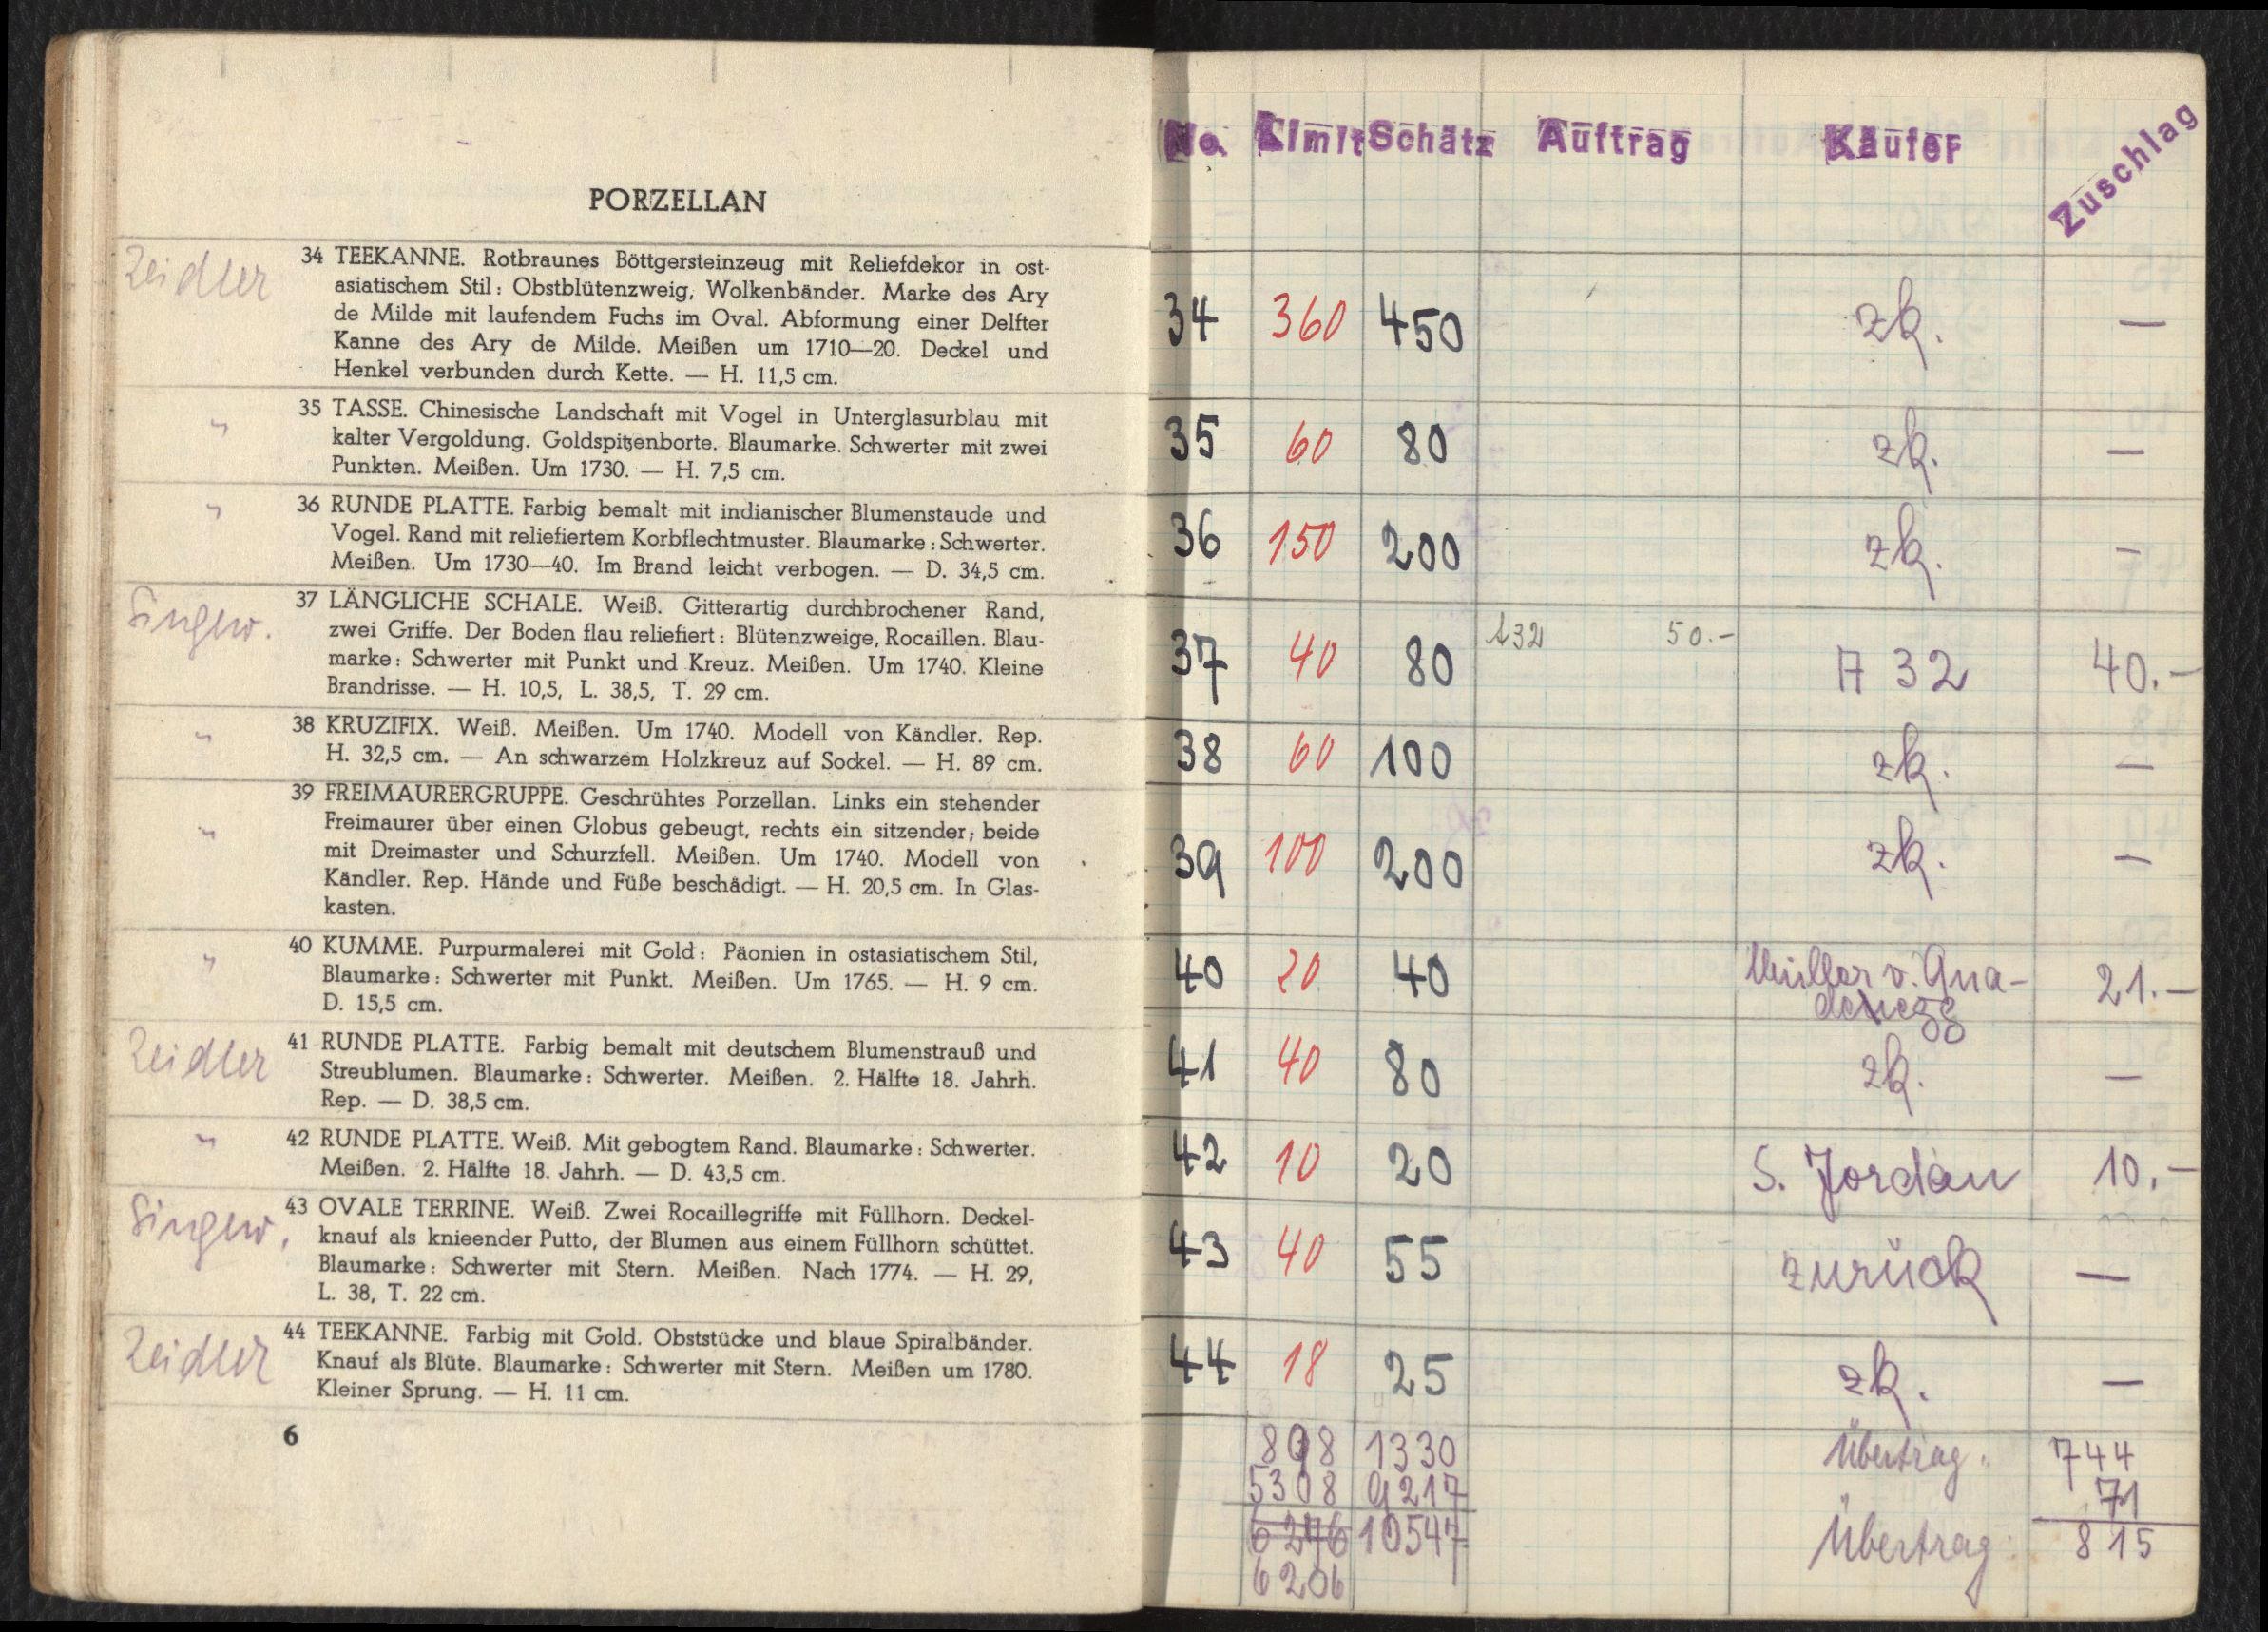 PORZELLAN
Zeidler
34 TEEKANNE. Rotbraunes Böttgersteinzeug mit Reliefdekor in ost-
asiatischem Stil: Obstblütenzweig, Wolkenbänder. Marke des Ary
de Milde mit laufendem Fuchs im Oval. Abformung einer Delfter
Kanne des Ary de Milde. Meißen um 1710—20. Deckel und
Henkel verbunden durch Kette. — H. 11,5 cm.
"
35 TASSE. Chinesische Landschaft mit Vogel in Unterglasurblau mit
kalter Vergoldung. Goldspitzenborte. Blaumarke. Schwerter mit zwei
Punkten. Meißen. Um 1730. — H. 7,5 cm.
"
36 RUNDE PLATTE. Farbig bemalt mit indianischer Blumenstaude und
Vogel. Rand mit reliefiertem Korbflechtmuster. Blaumarke: Schwerter.
Meißen. Um 1730—40. Im Brand leicht verbogen. — D. 34,5 cm.
Singew.
37 LÄNGLICHE SCHALE. Weiß. Gitterartig durchbrochener Rand,
zwei Griffe. Der Boden flau reliefiert: Blütenzweige, Rocaillen. Blau-
marke: Schwerter mit Punkt und Kreuz. Meißen. Um 1740. Kleine
Brandrisse. — H. 10,5, L. 38,5, T. 29 cm.
"
38 KRUZIFIX. Weiß. Meißen. Um 1740. Modell von Kändler. Rep.
H. 32,5 cm. — An schwarzem Holzkreuz auf Sockel. — H. 89 cm.
"
39 FREIMAURERGRUPPE. Geschrühtes Porzellan. Links ein stehender
Freimaurer über einen Globus gebeugt, rechts ein sitzender; beide
mit Dreimaster und Schurzfell. Meißen. Um 1740. Modell von
Kändler. Rep. Hände und Füße beschädigt. — H. 20,5 cm. In Glas-
kasten.
"
40 KUMME. Purpurmalerei mit Gold: Päonien in ostasiatischem Stil,
Blaumarke: Schwerter mit Punkt. Meißen. Um 1765. — H. 9 cm.
D. 15,5 cm.
Zeidler
41 RUNDE PLATTE. Farbig bemalt mit deutschem Blumenstrauß und
Streublumen. Blaumarke: Schwerter. Meißen. 2. Hälfte 18. Jahrh.
Rep. — D. 38,5 cm.
"
42 RUNDE PLATTE. Weiß. Mit gebogtem Rand. Blaumarke: Schwerter.
Meißen. 2. Hälfte 18. Jahrh. — D. 43,5 cm.
Singew.
43 OVALE TERRINE. Weiß. Zwei Rocaillegriffe mit Füllhorn. Deckel-
knauf als knieender Putto, der Blumen aus einem Füllhorn schüttet.
Blaumarke: Schwerter mit Stern. Meißen. Nach 1774. — H. 29,
L. 38, T. 22 cm.
Zeidler
44 TEEKANNE. Farbig mit Gold. Obststücke und blaue Spiralbänder.
Knauf als Blüte. Blaumarke: Schwerter mit Stern. Meißen um 1780.
Kleiner Sprung. — H. 11 cm.
6
No. Limit Schätz Auftrag Käufer Zuschlag
34 360 450 zk. —
35 60 80 zk. —
36 150 200 zk. —
37 40 80 A32 50.- A 32 40.-
38 60 100 zk. —
39 100 200 zk. —
40 20 40 Müller v. Gna-
denegg 21.-
41 40 80 zk. —
42 10 20 S. Jordan 10.-
43 40 55 zurück —
44 18 25 zk. —
898 1330 Übertrag: 744
5308 9217 71
6246 10547 Übertrag: 815
6206